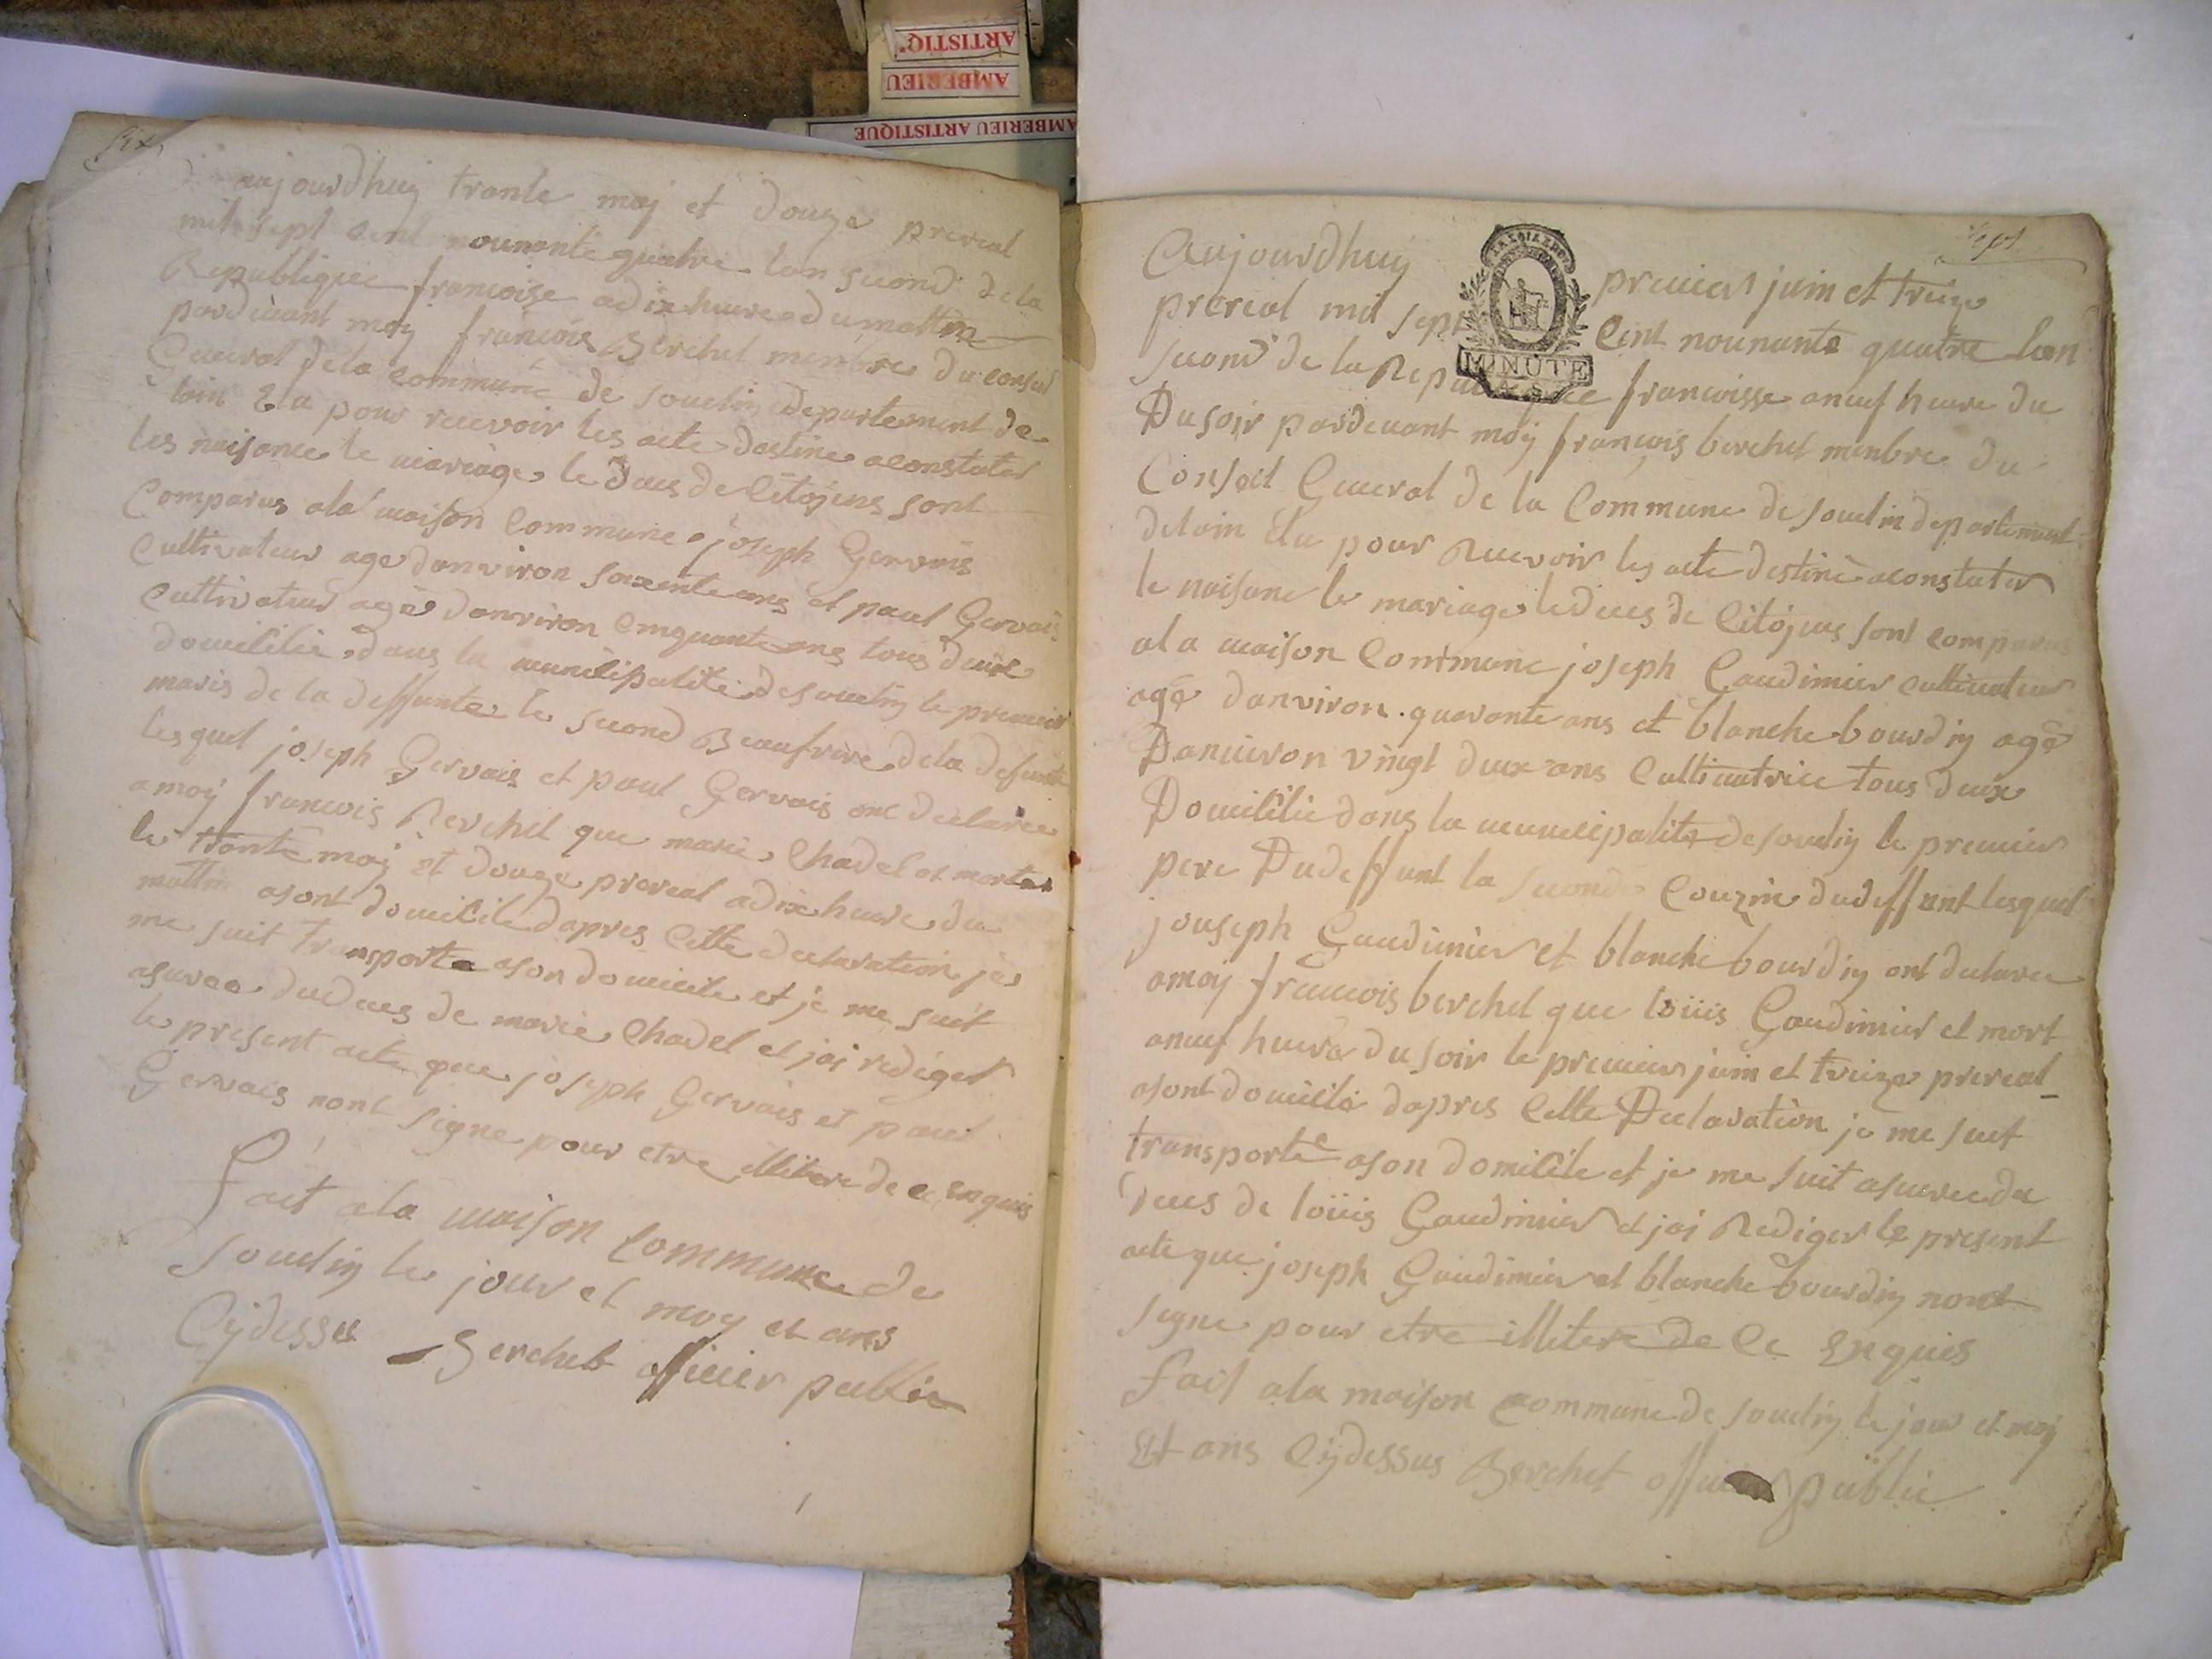 ARTISTIQ
AMBERIEU
AMBERIEU ARTISTIQUE
six
aujourdhuy trante may et douze prereal
mil sept cent nounante quatre lan second de la
Republique francoise a dix heure du mattin
pardevant moy francois Berchet menbre du conseil
General de la commune de souclin departement de
lain Elu pour recevoir les acte destine a constater
les naisance le mariage le deces de Citoyens sont
Comparus a la maison Commune joseph Gervais
Cultivateur age danviron soixente ans et paul Gervais
Cultivateur agé danviron Cinquante ans tous deux
domicilie dans la municipalite de souclin le premier
maris de la deffunte le second Beaufrere de la defunte
lesquel joseph Gervais et paul Gervais ont declaree
a moy francois Berchet que marie Chadel et morte
le trante may et douze prereal a dix heure du
mattin a sont domicile dapres Cette declaration je
me suit transporte a son domicile et je me suit
asuree du deces de marie Chadel et jai rediger
le present acte que joseph Gervais et paul
Gervais nont signe pour etre illitere de ce Enquis
fait a la maison Commune de
souclin le jour et moy et ans
Cydessus Berchet officier public
sept
MINUTE
Aujourdhuy premier juin et treize
prereal mil sept Cent nounante quatre lan
second de la Republique francoisse a neuf heure du
Du soir pardevant moy françois berchet menbre du
Conseil General de la Commune de souclin departement
de lain Elu pour Recevoir les acte destiné a constater
le naisance le mariage le deces de Citoyens sont comparus
a la maison Commune joseph Gaudimier cultivateur
agé danviron quarante ans et blanche bourdin agé
Danviron vingt deux ans Cultivatrice tous deux
Domicilie dans la municipalite de souclin le premier
pere Du deffunt la seconde Couzine du deffunt lesquel
jouseph Gaudimier et blanche bourdin ont declaree
a moy francois berchet que loüis Gaudimier et mort
a neuf heure du soir le premier juin et treize prereal
a sont domicile dapres Cette Declaration je me suit
transporté a son domicile et je me suit asuree du
deces de loüis Gaudimier et jai Rediger le present
acte que joseph Gaudimier et blanche bourdin nont
signe pour etre illitere de Ce Enquis
fait a la maison commune de souclin le jour et moy
Et ans Cydessus Berchet officier public